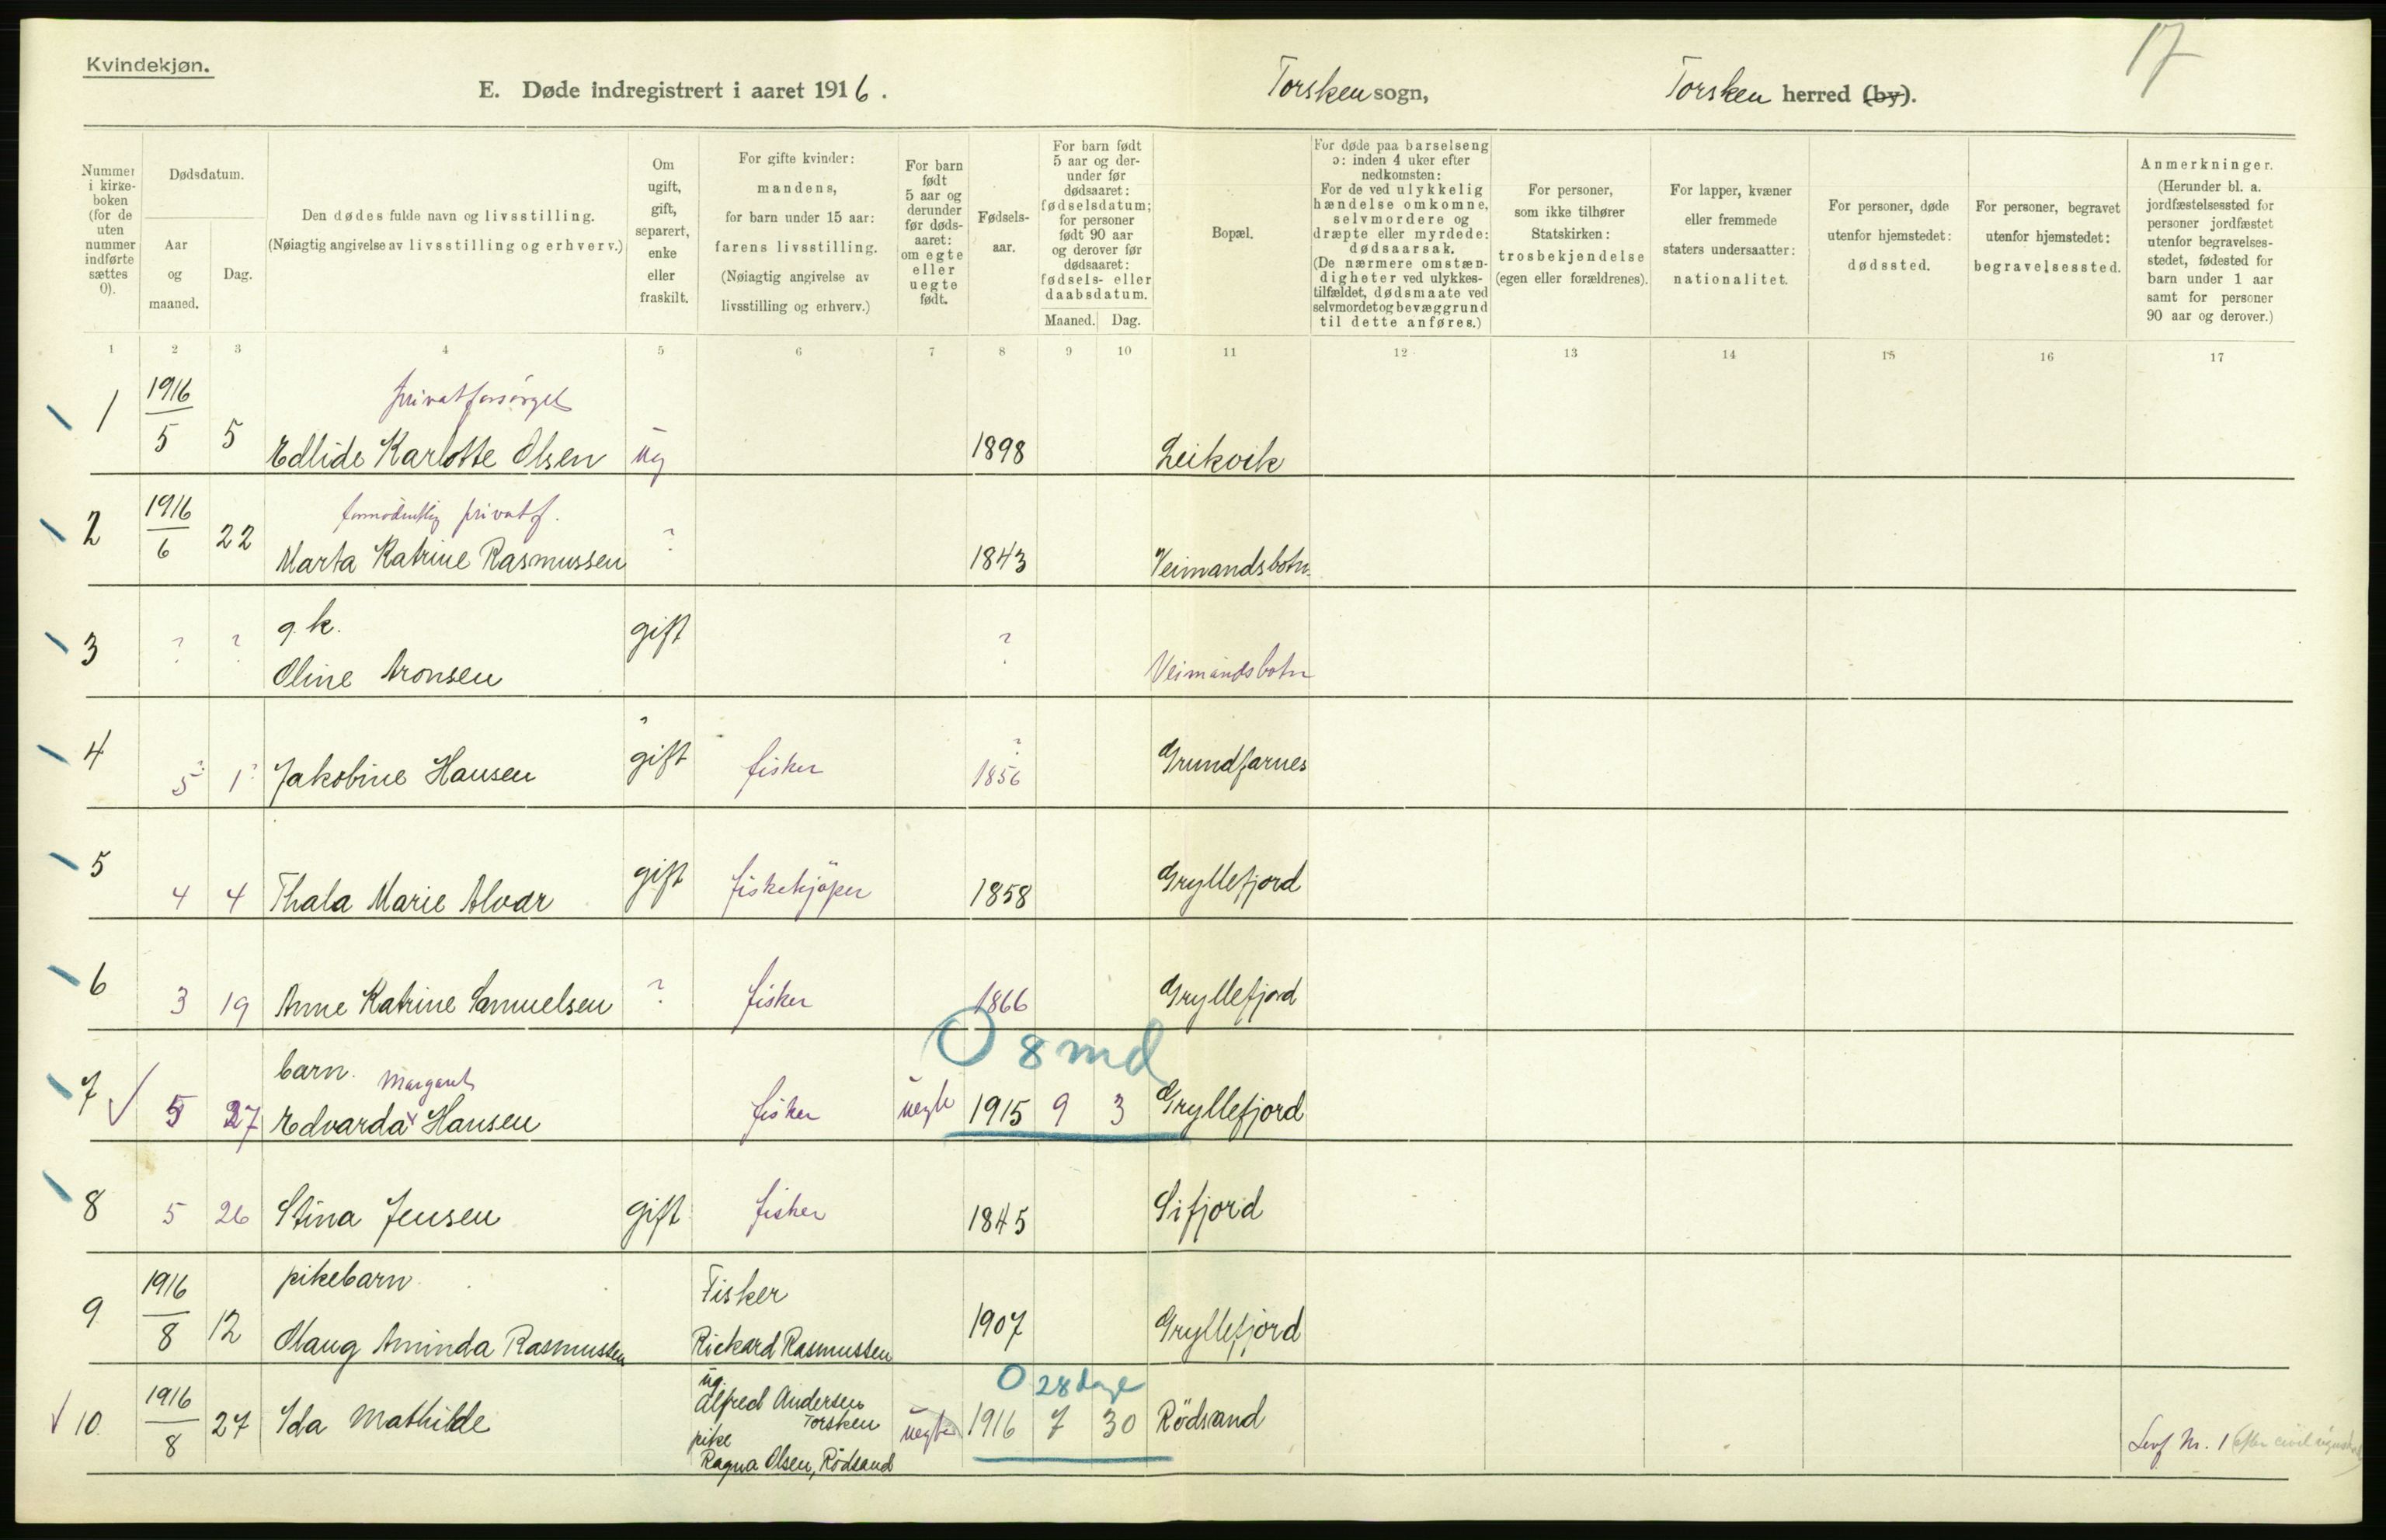 17
Kvindekjøn.
E. Døde indregistrert i aaret 1916. Torsken sogn, Torsken herred (by).
Nummer i kirke-boken (for de uten nummer indførte sættes 0).
Dødsdatum.
Aar og maaned.
Dag.
Den dødes fulde navn og livsstilling.
(Nøiagtig angivelse av livsstilling og erhverv.)
Om ugift, gift, separert, enke eller fraskilt.
For gifte kvinder:
mandens,
for barn under 15 aar:
farens livsstilling.
(Nøiagtig angivelse av
livsstilling og erhverv.)
For barn født 5 aar og derunder før døds-aaret: om egte eller uegte født.
Fødsels-aar.
For barn født 5 aar og der-under før dødsaaret: fødselsdatum; for personer født 90 aar og derover før dødsaaret: fødsels- eller daabsdatum.
Maaned. Dag.
Bopæl.
For døde paa barselseng
ɔ: inden 4 uker efter
nedkomsten:
For de ved ulykkelig
hændelse omkomne,
selvmordere og
dræpte eller myrdede:
dødsaarsak.
(De nærmere omstæn-
digheter ved ulykkes-
tilfældet, dødsmaate ved
selvmordet og bevæggrund
til dette anføres.)
For personer,
som ikke tilhører
Statskirken:
trosbekjendelse
(egen eller forældrenes).
For lapper, kvæner
eller fremmede
staters undersaatter:
nationalitet.
For personer, døde
utenfor hjemstedet:
dødssted.
For personer, begravet
utenfor hjemstedet:
begravelsessted.
Anmerkninger.
(Herunder bl. a.
jordfæstelsessted for
personer jordfæstet
utenfor begravelses-
stedet, fødested for
barn under 1 aar
samt for personer
90 aar og derover.)
1 2 3 4 5 6 7 8 9 10 11 12 13 14 15 16 17
privat forsörget
1 1916/5 5 Edlide Karlotte Olsen ug 1898 Leikvik
formodentlig privatf.
2 1916/6 22 Marta Katrine Rasmussen ? 1843 Veimandsbotn
g.k.
3 ? ? Oline Aronsen gift ? Veimandsbotn
4 5? 1? Jakobine Hansen gift ? fisker 1856 ? Grundfarnes
5 4 4 Thala Marie Alvær gift fiskekjöper 1858 Gryllefjord
6 3 19 Anne Katrine Samuelsen ? fisker 1866 Gryllefjord
O 8 md
barn. Margaret
7 5 27 Edvarda Hansen fisker uegte 1915 9 3 Gryllefjord
8 5 26 Stina Jensen gift fisker 1845 Sifjord
pikebarn Fisker
9 1916/8 12 Olaug Aminda Rasmussen Rickard Rasmussen 1907 Gryllefjord
O 28 dage
ug. Alfred Andersen Torsken
10 1916/8 27 Ida Mathilde pike Ragna Olsen, Rödsand uegte 1916 7 30 Rödsand